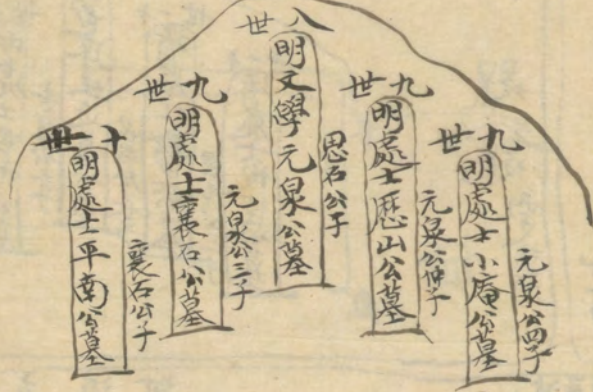 八世
明文學元泉公墓
思石公子
九世
明處士歷山公墓
元泉公仲子
九世
明處士襄石公墓
元泉公三子
九世
明處士小庵公墓
元泉公四子
十世
明處士平南公墓
襄石公子